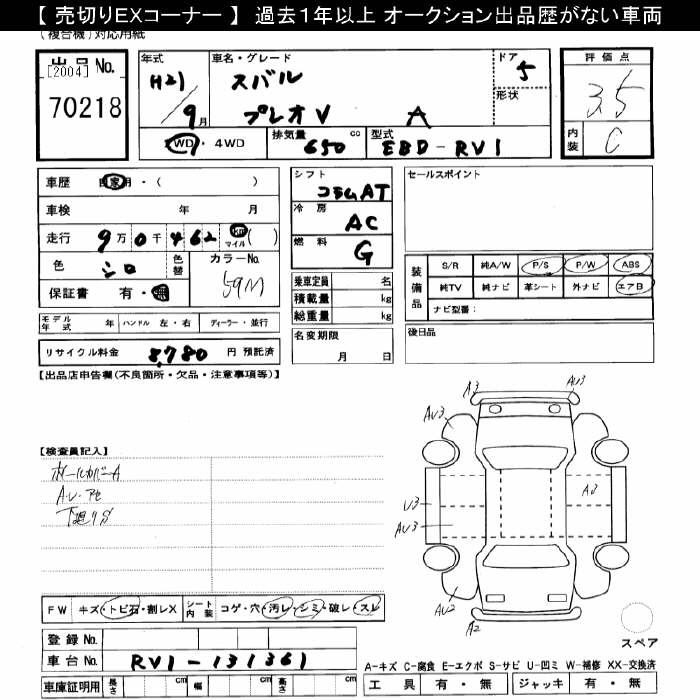 【 売切りEXコーナー 】 過去1年以上 オークション出品歴がない車両
(複合機)対応用紙
出品No.
[2004]
70218
年式
H21/9月
車名・グレード
スバル
プレオV A
ドア
5
形状
評価点
3.5
内装
C
2WD・4WD
排気量 650 cc
型式 EBD-RV1
車歴 自家用・( )
車検 年 月
走行 9万0千462 km マイル( )
色 シロ 色替
カラーNo. 59M
保証書 有・無
モデル年式 年 ハンドル 左・右 ディーラー・並行
リサイクル料金 8,780 円 預託済
シフト コラムAT
冷房 AC
燃料 G
乗車定員 名
積載量 kg
総重量 kg
名変期限
月 日
セールスポイント
装備品
S/R 純A/W P/S P/W ABS
純TV 純ナビ 革シート 外ナビ エアB
ナビ型番:
後日品
【出品店申告欄(不良箇所・欠品・注意事項等)】
【検査員記入】
ホイールカバーA
A.U.アセ
下廻りS
A3
AU3
AU3
U3
AU3
A3
AU2
A2
FW キズ・トビ石・割レX
シート内装 コゲ・穴・汚レ・シミ・破レ・スレ
登録No.
車台No. RV1-131361
車庫証明用 長さ cm 幅 cm 高さ cm
スペア
A-キズ C-腐食 E-エクボ S-サビ U-凹ミ W-補修 XX-交換済
工具 有・無 ジャッキ 有・無